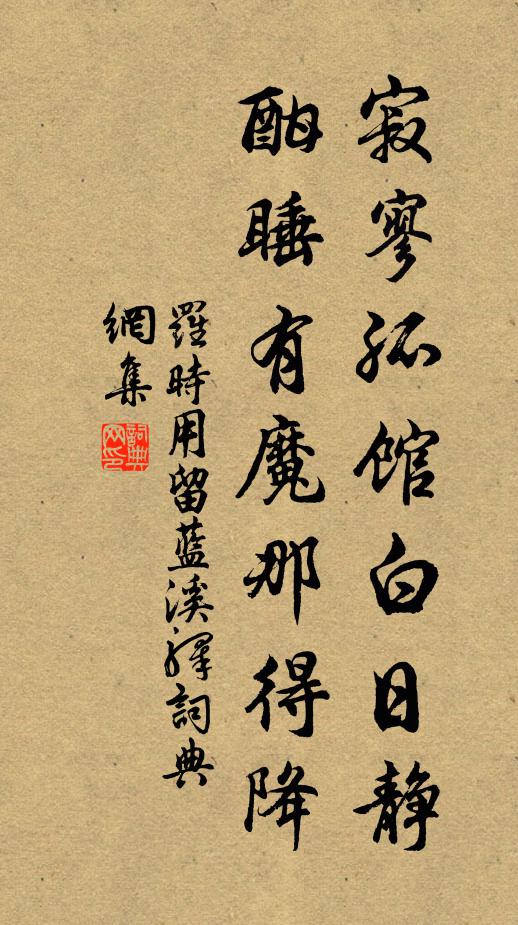 寂寥孤馆白日静
酣睡有魔那得降
羅時用留藍溪驛詞典
網集
詞典
网印